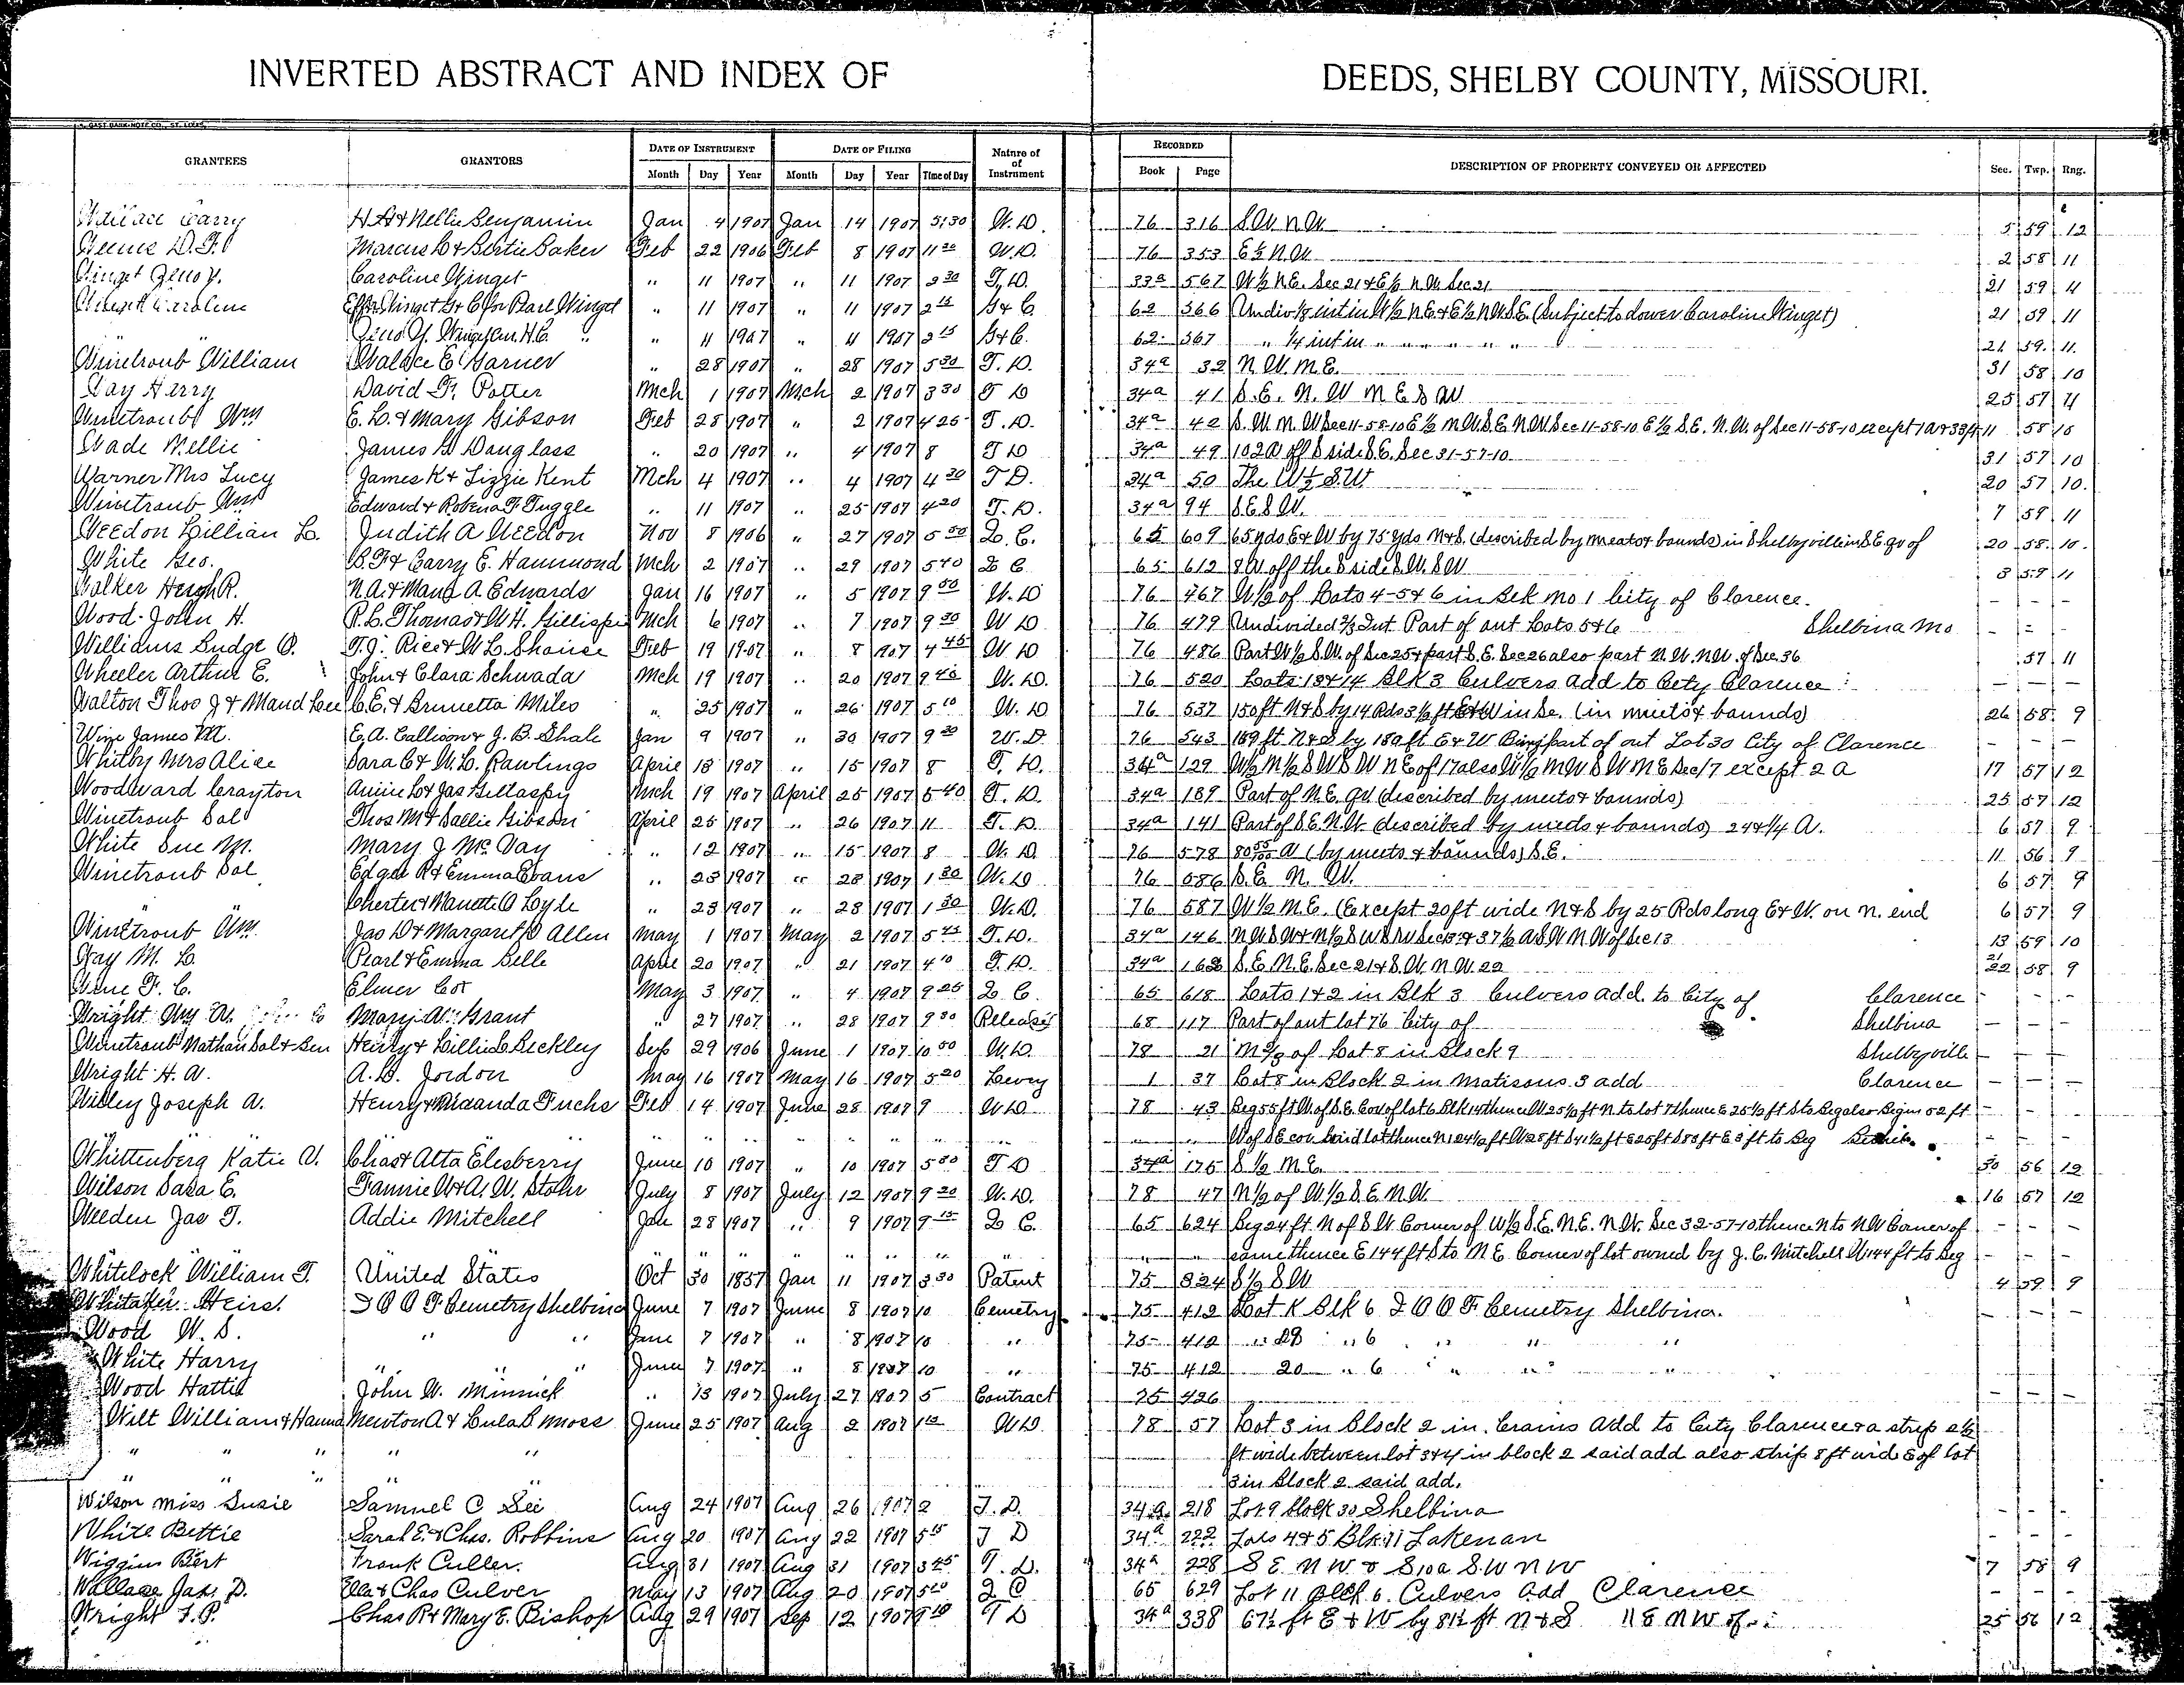 INVERTED ABSTRACT AND INDEX OF DEEDS, SHELBY COUNTY, MISSOURI.
GAST BANK NOTE CO., ST. LOUIS.
GRANTEES GRANTORS DATE OF INSTRUMENT DATE OF FILING Nature of of Instrument RECORDED DESCRIPTION OF PROPERTY CONVEYED OR AFFECTED Sec. Twp. Rng.
Month Day Year Month Day Year Time of Day Book Page
Wallace Carry H.A & Nellie Benjamin Jan 4 1907 Jan 14 1907 5:30 W. D. 76 316 S.W. N W 5 59 12
D. F. Marcus L & Bertie Baker Feb 22 1906 Feb 8 1907 11 20 W.D. 76 353 E ½ N W 2 58 11
Winget Geno Y. Caroline Winget " 11 1907 " 11 1907 2 30 T. D. 33a 567 W ½ N E. Sec 21 & E ½ N W Sec 21 21 59 11
Winget Caroline Winget G & C for Pearl Winget " 11 1907 " 11 1907 2 15 G & C. 62 366 Undiv ⅓ int in W ½ N E & E ½ N W S E (Subject to dower Caroline Winget) 21 59 11
Geno Y. Winget " " 11 1907 " 11 1907 2 15 G & C. 62 367 " ¼ int in " " " " " " 21 59 11
Winetroub William Wallace E. Garner " 28 1907 " 28 1907 5 30 T. D. 34a 32 N. W. N. E. 31 58 10
Way Harry David F. Potter Mch 1 1907 Mch 2 1907 3 30 T D 34a 41 S. E. N. W N E S W 25 57 11
Winetroub Wm E. L. & Mary Gibson Feb 28 1907 " 2 1907 4 25 T. D. 34a 42 S. W. N. W Sec 11-58-10 E ½ N W S E N W Sec 11-58-10 E ½ S. E. N. W. of Sec 11-58-10 except 1 a & 33 ft 11 58 10
Wade Nellie James G Douglass " 20 1907 " 4 1907 8 T D 34a 49 102 a off S side S. E. Sec 31-57-10 31 57 10
Warner Mrs Lucy James K & Lizzie Kent Mch 4 1907 " 4 1907 4 30 T D. 34a 50 The W ½ S. W 20 57 10.
Winetroub Wm Edward & Robena F Tuggle " 11 1907 " 25 1907 4 20 T. D. 34a 94 S. E S W. 7 59 11
Weedon Lillian L. Judith A Weedon Nov 8 1906 " 27 1907 5 50 Q. C. 65 609 65 yds E & W by 75 yds N & S. (described by meats & bounds) in Shelbyville in S E qr of 20 58 10.
White Geo. & Carry E. Hammond Mch 2 1907 " 29 1907 5 40 Q C 65 612 8 a off the S side S. W. S W 3 57 11
Walker Hugh R. N. A & Maud A Edwards Jan 16 1907 " 5 1907 9 00 W. D 76 467 W ½ of Lots 4-5 & 6 in Blk no 1 City of Clarence. - - -
Wood John H. R. L. Thomas & W. H. Gillispie Mch 6 1907 " 7 1907 9 30 W D 76 479 Undivided ⅔ Int Part of out Lots 5 & 6 Shelbina Mo - - -
Williams Budge O. T. J. Rice & W. L. Shouse Feb 19 1907 " 8 1907 4 45 W D 76 486 Part W ½ S. W. of Sec 25 & part S. E. Sec 26 also part N. W. N W. of Sec 36 57 11
Wheeler Arthur E. John & Clara Schwada Mch 19 1907 " 20 1907 9 40 W. D. 76 520 Lots 13 & 14 Blk 3 Culvers add to City Clarence - - -
Walton Thos J & Maud Lee C. E. & Brunetta Miles " 25 1907 " 26 1907 5 10 W. D 76 537 150 ft N & S by 14 Rds 3 ½ ft E & W in Se. (in meets & bounds) 26 58 9
Wine James M. E. A. Callison & J. B. Shale Jan 9 1907 " 30 1907 9 20 W. D. 76 543 189 ft N & S by 189 ft E & W Being part of out Lot 30 City of Clarence - - -
Whitby Mrs Alice Sara C & W. L. Rawlings April 13 1907 " 15 1907 8 T. D. 34a 129 W ½ N ½ S W S W N E of 17 also W ½ N W S W N E Sec 17 except 2 A 17 57 12
Woodward Crayton Annie L & Jas Gillaspy Mch 19 1907 April 25 1907 5 40 T. D. 34a 139 Part of N. E. qr (described by meets & bounds) 25 57 12
Winetroub Sol Thos M & Sallie Gibson April 25 1907 " 26 1907 11 T. D. 34a 141 Part of S. E. N. W. (described by meets & bounds) 24 & ¼ A. 6 57 9
White Sue M. Mary J McVay " 12 1907 " 15 1907 8 W. D. 76 578 80 55/100 a (by meets & bounds) S. E. 11 56 9
Winetroub Sol Edgar R & Emma Evans " 23 1907 " 28 1907 1 30 W. D 76 586 S. E. N. W. 6 57 9
" Chester & Manette O Lyle " 23 1907 " 28 1907 1 30 W. D. 76 587 W ½ N. E. (Except 20 ft wide N & S by 25 Rds long E & W. on N. end 6 57 9
Winetroub Wm. Jas D & Margaret D Allen May 1 1907 May 2 1907 5 45 T. D. 34a 146 N W S W & N ½ S W S W Sec 13 & 37 ½ A S W N W of Sec 13 13 59 10
Way M. L. Pearl & Emma Belle April 20 1907 " 21 1907 4 10 T. D. 34a 162 S. E. N. E. Sec 21 & S. W. N. W. 22 21 22 58 9
Wine F. C. Elmer Cox May 3 1907 " 4 1907 9 25 Q C. 65 618 Lots 1 & 2 in Blk 3 Culvers add. to City of Clarence - - -
Wright Wm. A. Mary A. Grant " 27 1907 " 28 1907 9 30 Release 68 117 Part of out lot 76 City of Shelbina - - -
Winetroub Nathan Sol & Ben Henry & Lillie C Beckley Sep 29 1906 June 1 1907 10 00 W. D. 78 21 N ⅔ of Lot 8 in Block 9 Shelbyville - - -
Wright H. A. A. D. Jordon May 16 1907 May 16 1907 5 20 Levey 1 37 Lot 8 in Block 2 in Matisons 3 add Clarence - - -
Willey Joseph A. Henry & Miranda Fuchs Feb 14 1907 June 28 1907 9 W D 78 43 Beg 55 ft W. of S. E. Cor of lot 6 Blk 14 thence W 25 ½ ft N. to lot 7 thence E 25 ½ ft S to Beg also Begins 52 ft - - -
" " " " " " " " " " " " W of S E cor said lot thence N 124 ½ ft W 28 ft S 41 ½ ft E 25 ft S 83 ft E 3 ft to Beg - - -
Whittenberg Katie V. Chas & Atta Elesberry June 10 1907 " 10 1907 5 30 T D 34a 175 S ½ N. E. 30 56 12
Wilson Sara E. Fannie W & A. W. Stohr July 8 1907 July 12 1907 9 20 W. D. 78 47 N ½ of W ½ S. E. N. W. 16 57 12
Weeden Jas T. Addie Mitchell Jan 28 1907 " 9 1907 9 15 Q C. 65 624 Beg 24 ft. N of S W Corner of W ½ S. E. N. E. N. W. Sec 32-57-10 thence N to N W Corner of - - -
" " " " " " " " " same thence E 144 ft S to N. E. Corner of lot owned by J. C. Mitchell W 144 ft to Beg - - -
Whitelock William T. United States Oct 30 1857 Jan 11 1907 3 30 Patent 75 324 S ½ S W 4 59 9
Whitaker Heirs. I O O F Cemetry Shelbina June 7 1907 June 8 1907 10 Cemetry 75 412 Lot K Blk 6 I O O F Cemetry Shelbina. - - -
Wood W. S. " " June 7 1907 " 8 1907 10 " 75 412 " 28 " 6 " " "
White Harry " " " June 7 1907 " 8 1907 10 " 75 412 20 " 6 " " " - - -
Wood Hattie John W. Minnick " 13 1907 July 27 1907 5 Contract 75 426 - - -
Wilt William & Hanna Newton A & Lula B Moss June 25 1907 Aug 2 1907 1 15 W D. 78 57 Lot 3 in Block 2 in. Crains add to City Clarence & a strip 2 ½
" " " " " ft wide between lot 3 & 4 in block 2 said add also strip 8 ft wide E of Lot
" " " " " 3 in Block 2 said add.
Wilson Miss Susie Samuel C See Aug 24 1907 Aug 26 1907 2 T. D. 34a 218 Lot 9 block 30 Shelbina - - -
White Bettie Sarah E. & Chas. Robbins Aug 20 1907 Aug 22 1907 5 15 T D 34a 222 Lots 4 & 5 Blk 11 Lakenan - - -
Wiggins Bert Frank Culler. Aug 31 1907 Aug 31 1907 3 45 T. D. 34a 228 S E N W & S 10 a S. W N W 7 58 9
Wallace Jas. D. Ella & Chas Culver May 13 1907 Aug 20 1907 5 20 Q C 65 629 Lot 11 Blk 6. Culvers add Clarence - - -
Wright T. P. Chas R & Mary E. Bishop Aug 29 1907 Sep 12 1907 9 10 T D 34a 338 67½ ft E & W by 81½ ft N & S N E N W of 25 56 12